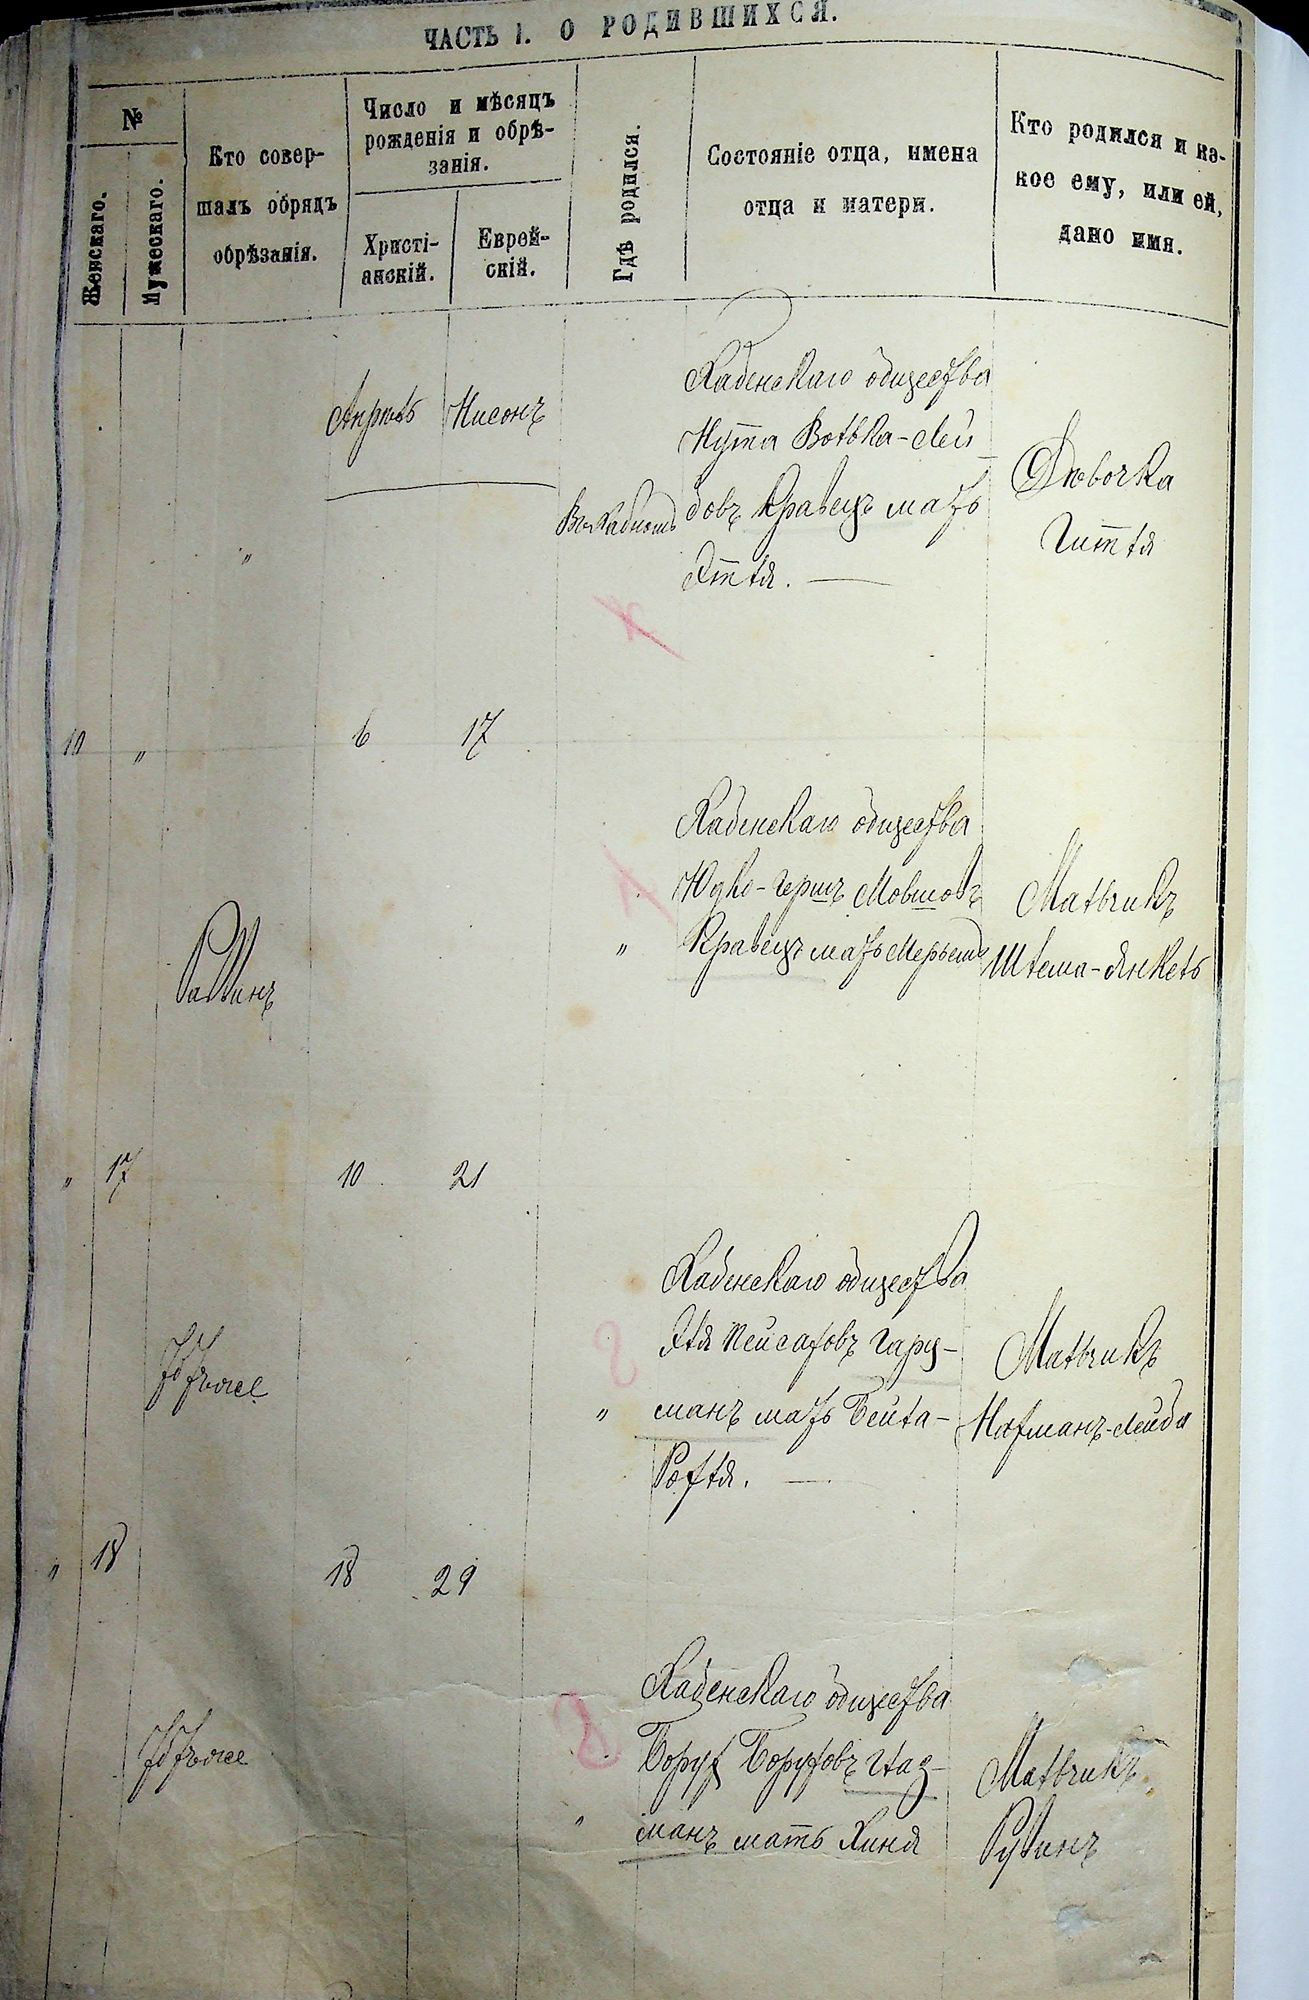 ЧАСТЬ I. О РОДИВШИХСЯ.
№
Женскаго.
Мужескаго.
Кто совер-
шалъ обрядъ
обрѣзанія.
Число и мѣсяцъ
рожденія и обрѣ-
занія.
Христі-
анскій.
Еврей-
скій.
Гдѣ родился.
Состояніе отца, имена
отца и матери.
Кто родился и ка-
кое ему, или ей,
дано имя.
Апрѣль Нисонъ
Кабенскаго общества
Нута Волька-Лей-
бовъ Кравецъ мать
Этля.
Дѣвочка
Гитля
"
10 " 6 17
Раввинъ
"
Кабенскаго общества
Юдко-Гершъ Мовшовъ
Кравецъ мать
Мальчикъ
Шлема-Янкель
" 17 10 21
То тъже
"
Кабенскаго общества
Эля Пейсаховъ Гарц-
манъ мать Бейла-
Рохля.
Мальчикъ
Нахманъ-Лейба
" 18 18 29
То тъже
"
Кабенскаго общества
Борух Боруховъ Глаз-
манъ мать Хиня
Мальчикъ
Рувинъ